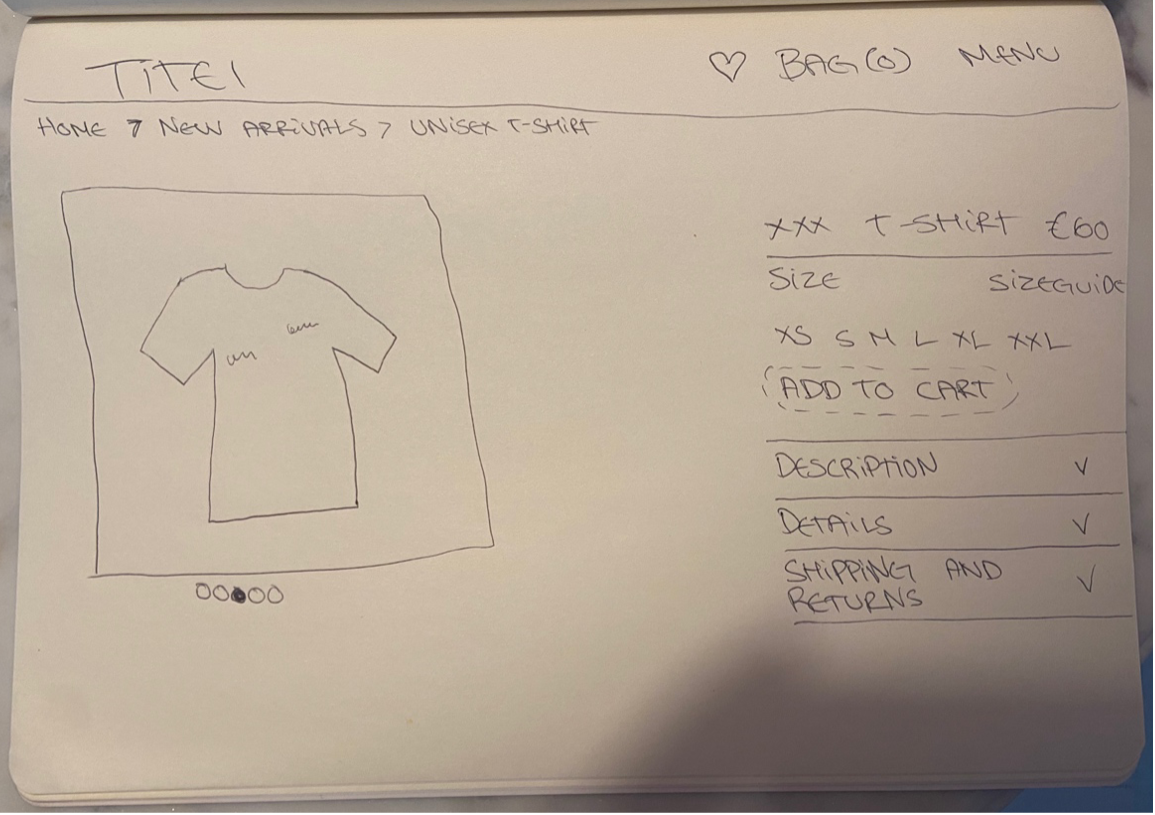 TiTEl ♡ BAG(0) MENU
HOME > NEW ARRiVALS > UNiSEX T-SHiRT
XXX T-SHiRT €60
SiZE SiZEGUiDE
XS S M L XL XXL
ADD TO CART
DESCRiPTiON
DETAiLS
SHiPPiNG AND
RETURNS